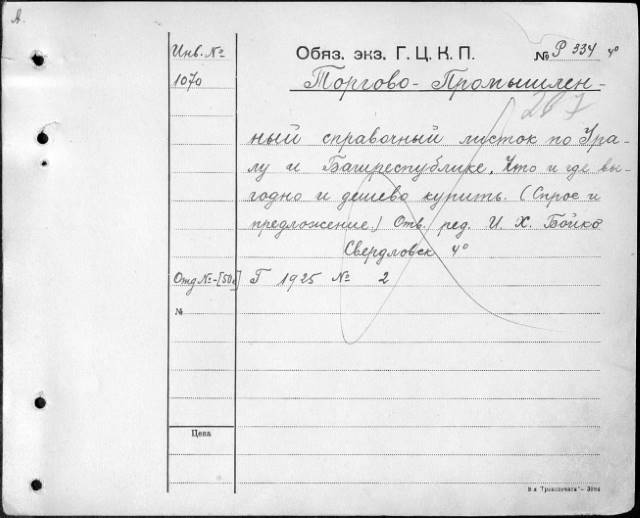 А.
Инв. №
Обяз. экз. Г. Ц. К. П.
№ Р 334 4°
1070
Торгово-Промышлен-
207
ный справочный листок по Ура-
лу и Башреспублике. Что и где вы-
годно и дешево купить. (Спрос и
предложение.) Отв. ред. И. Х. Бойко
Свердловск 4°
Отд №-[50к] Г 1925 № 2
№
Цена